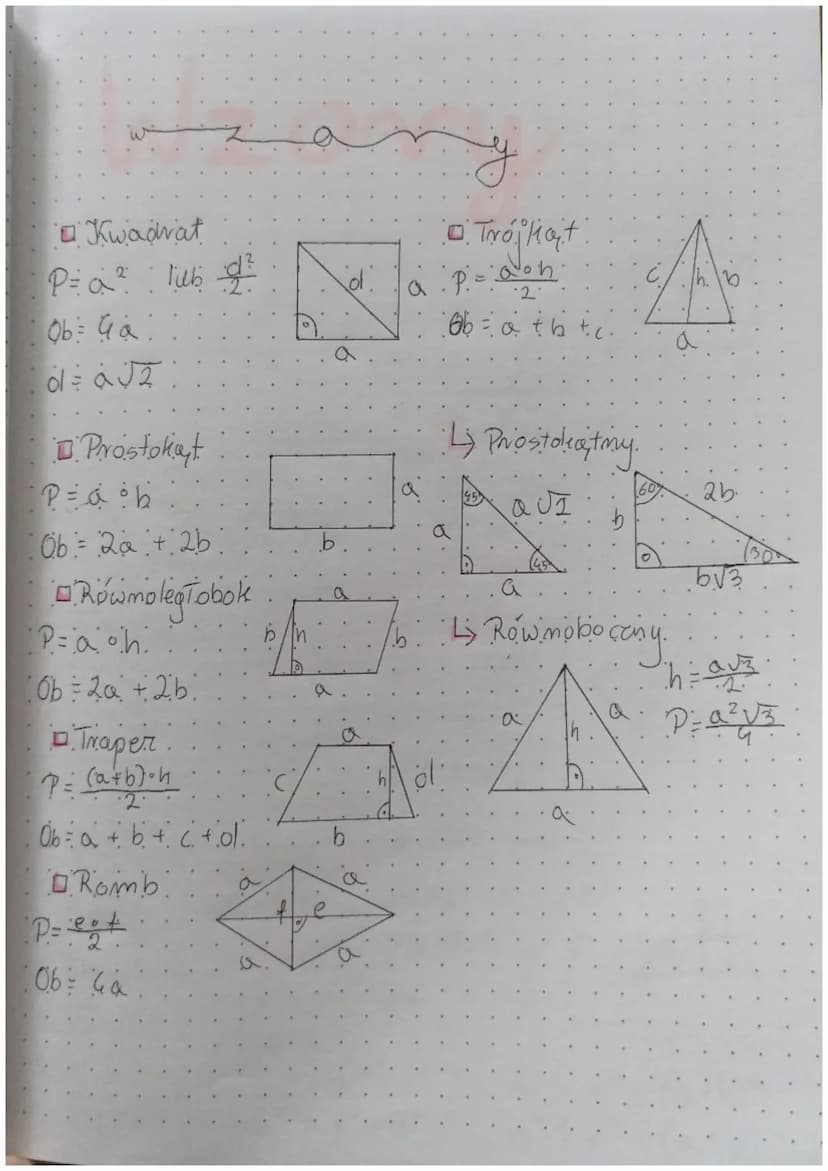 Wzory
wzory
Kwadrat
P = a² lub d²/2
Ob = 4a
d = a√2
d
a
a
Trójkąt
P = a∘h/2
Ob = a + b + c
c
h
b
a
Prostokąt
P = a∘b
Ob = 2a + 2b
a
b
↳ Prostokątny
45°
a√2
a
45°
a
60°
2b
b
30°
b√3
Równoległobok
P = a∘h
Ob = 2a + 2b
a
b
h
b
a
↳ Równoboczny
h = a√3/2
P = a²√3/4
a
a
h
a
Trapez
P = (a+b)∘h/2
Ob = a + b + c + d
a
c
h
d
b
Romb
P = e∘f/2
Ob = 4a
a
a
f
e
a
a